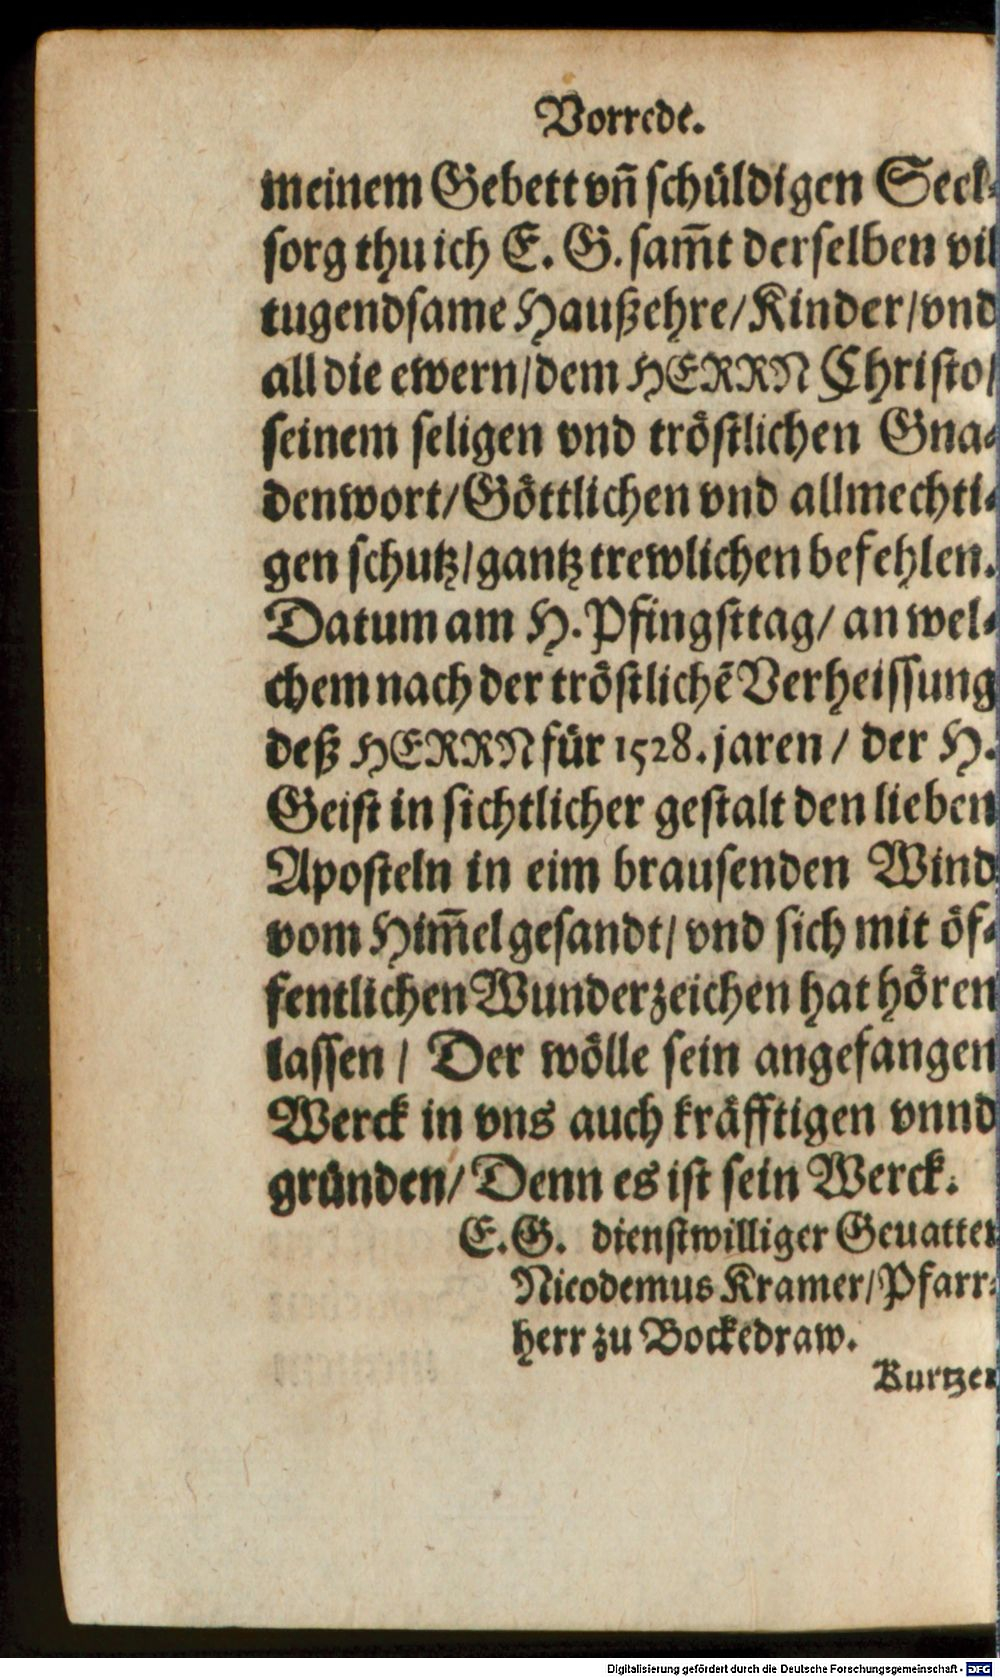 Vorrede.
meinem Gebett vñ schüldigen Seel-
sorg thu ich E. G. sam̃t derselben vil
tugendsame Haußehre/Kinder/vnd
all die ewern/dem HERRN Christo/
seinem seligen vnd tröstlichen Gna-
denwort/Göttlichen vnd allmechti-
gen schutz/gantz trewlichen befehlen.
Datum am H. Pfingsttag/ an wel-
chem nach der tröstlichẽ Verheissung
deß HERRN für 1528. jaren / der H.
Geist in sichtlicher gestalt den lieben
Aposteln in eim brausenden Wind
vom Him̃el gesandt/ vnd sich mit öf-
fentlichen Wunderzeichen hat hören
lassen / Der wölle sein angefangen
Werck in vns auch kräfftigen vnnd
gründen/ Denn es ist sein Werck.
E. G. dienstwilliger Geuatter
Nicodemus Kramer/Pfarr-
herr zu Bockedraw.
Kurtzer
Digitalisierung gefördert durch die Deutsche Forschungsgemeinschaft - DFG